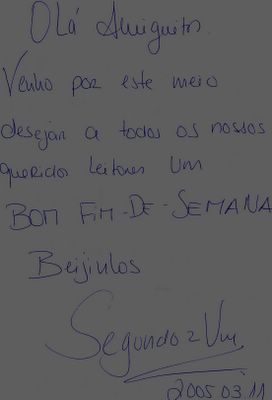 Olá Amiguitos.
Venho por este meio
desejar a todos os nossos
queridos leitores um
BOM FIM-DE-SEMANA
Beijinhos
Segundo
2005.03.11